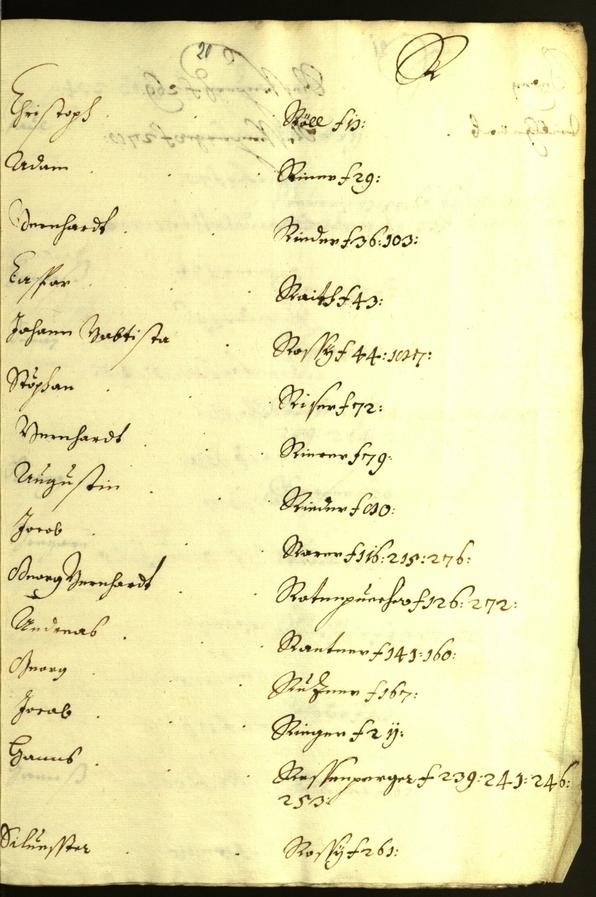 20 R
Christoph Röll f 13:
Adam Riner f 29:
Bernhardt Rieder f 36: 103:
Caspar Raith f 43:
Johann Babtista Rossy f 44:
Stöphan Riser f 72:
Bernhardt f 79:
Augustin Rieder
Jacob f 116: 215: 276:
Georg Bernhardt Rotenpuecher f 126: 272:
Andreas Rantner f 141: 160:
Georg f 167:
Jacob Rieger f 211:
Hanns Ressenperger f 239: 241: 246:
253:
Siluesster Rossy f 261: